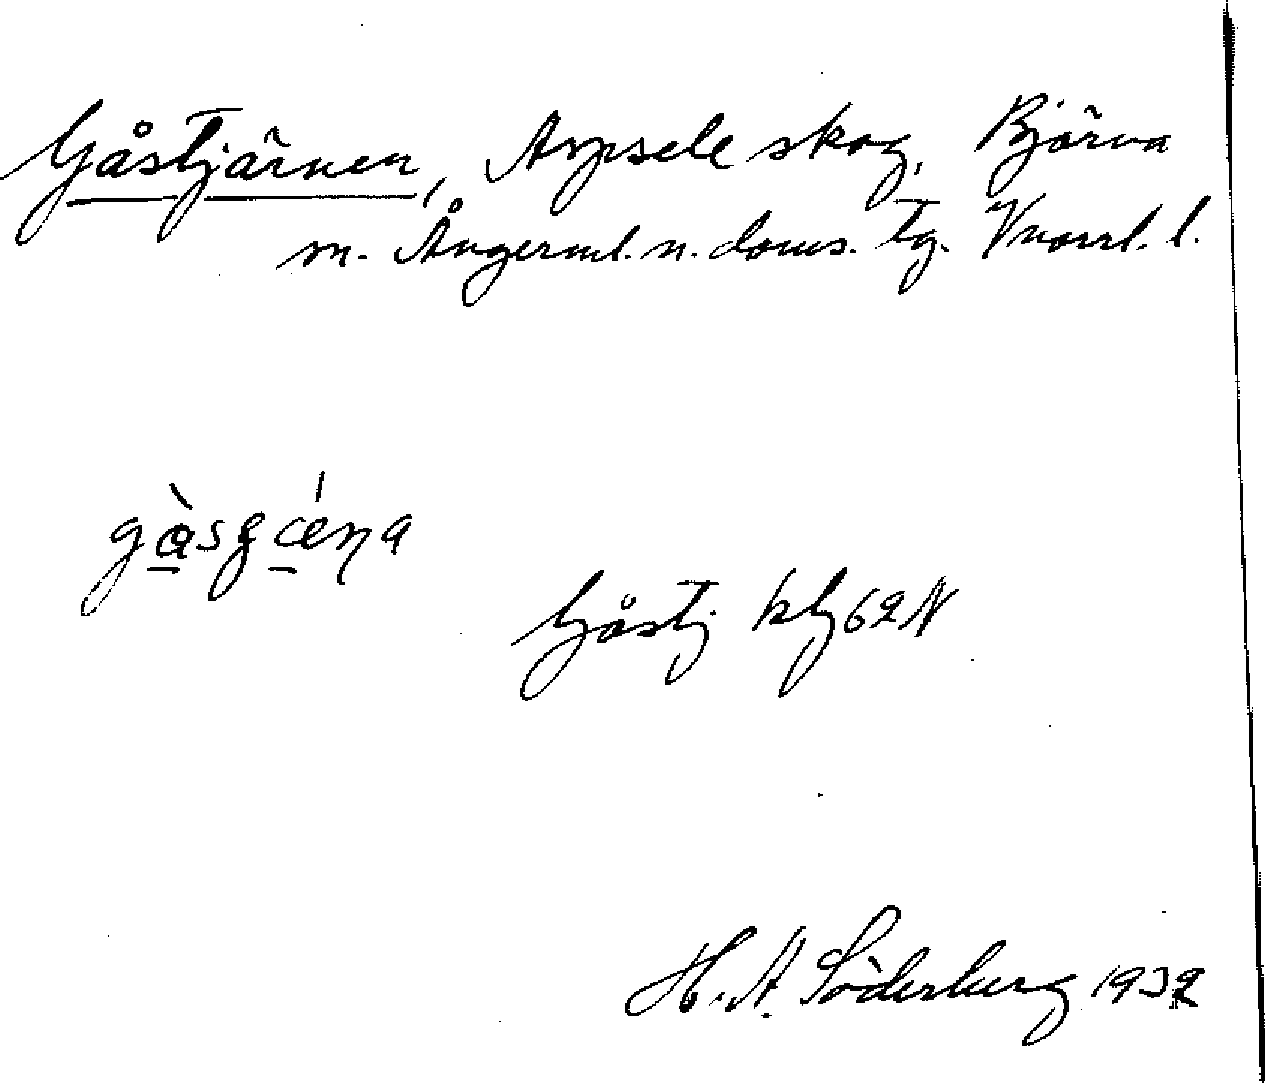 Gåstjärnen, Arpsele skog, Björna
m. Ångerml. n. doms. tg. Vnorrl. l.
Gåstj. kbl 62 N
H. A. Söderberg 1932